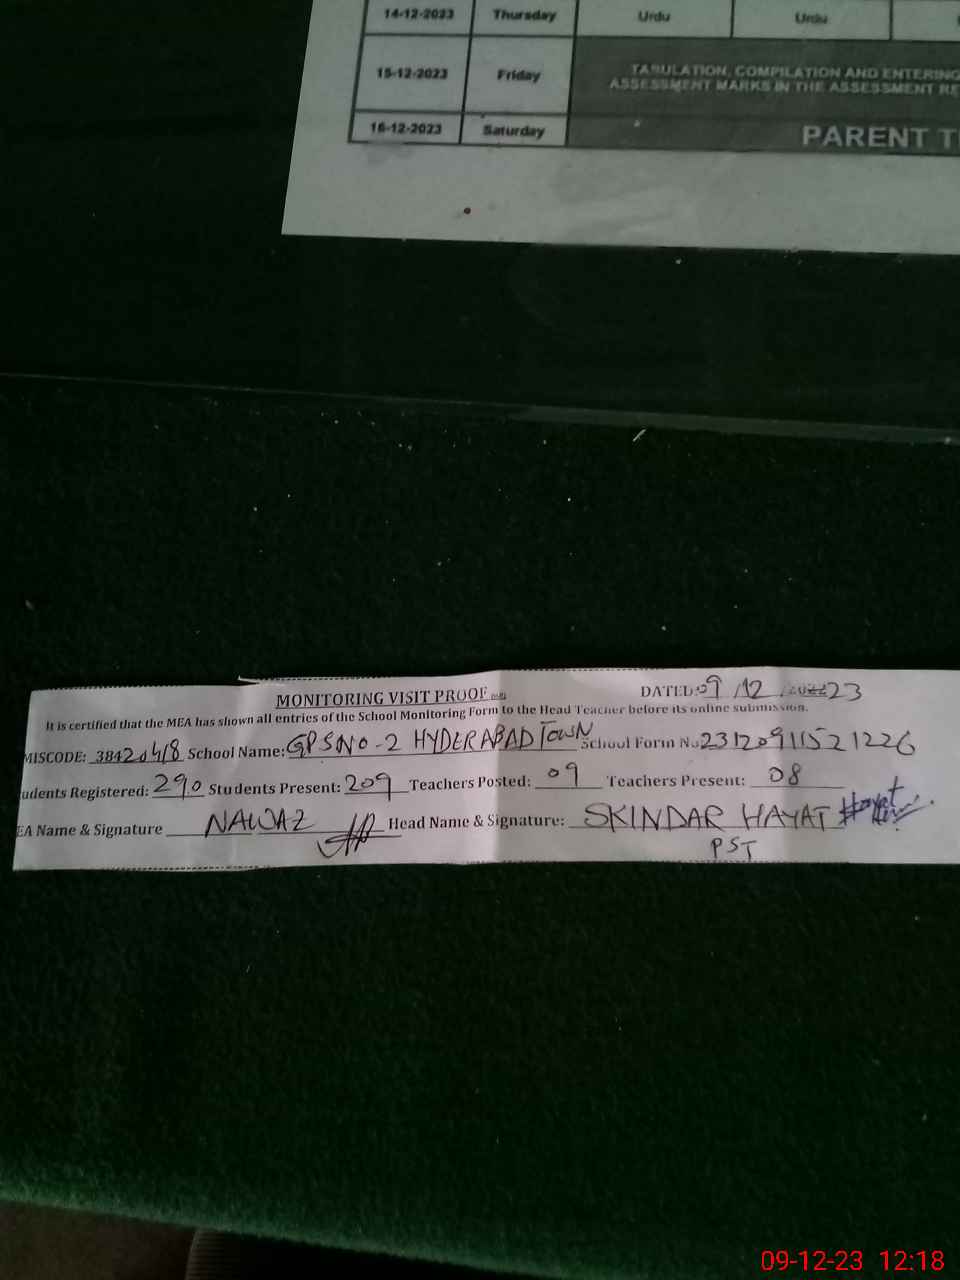 14-12-2023 Thursday Urdu Urdu
15-12-2023 Friday TABULATION, COMPILATION AND ENTERING
ASSESSMENT MARKS IN THE ASSESSMENT RE
16-12-2023 Saturday PARENT T
MONITORING VISIT PROOF DATED: 09 /12 /2022 23
It is certified that the MEA has shown all entries of the School Monitoring Form to the Head Teacher before its online submission.
MISCODE: 38420418 School Name: GPS NO-2 HYDERABAD TOWN School Form No 2312091152 1226
udents Registered: 290 Students Present: 209 Teachers Posted: 09 Teachers Present: 08
EA Name & Signature NAWAZ Head Name & Signature: SKINDAR HAYAT Hayat
PST
09-12-23 12:18